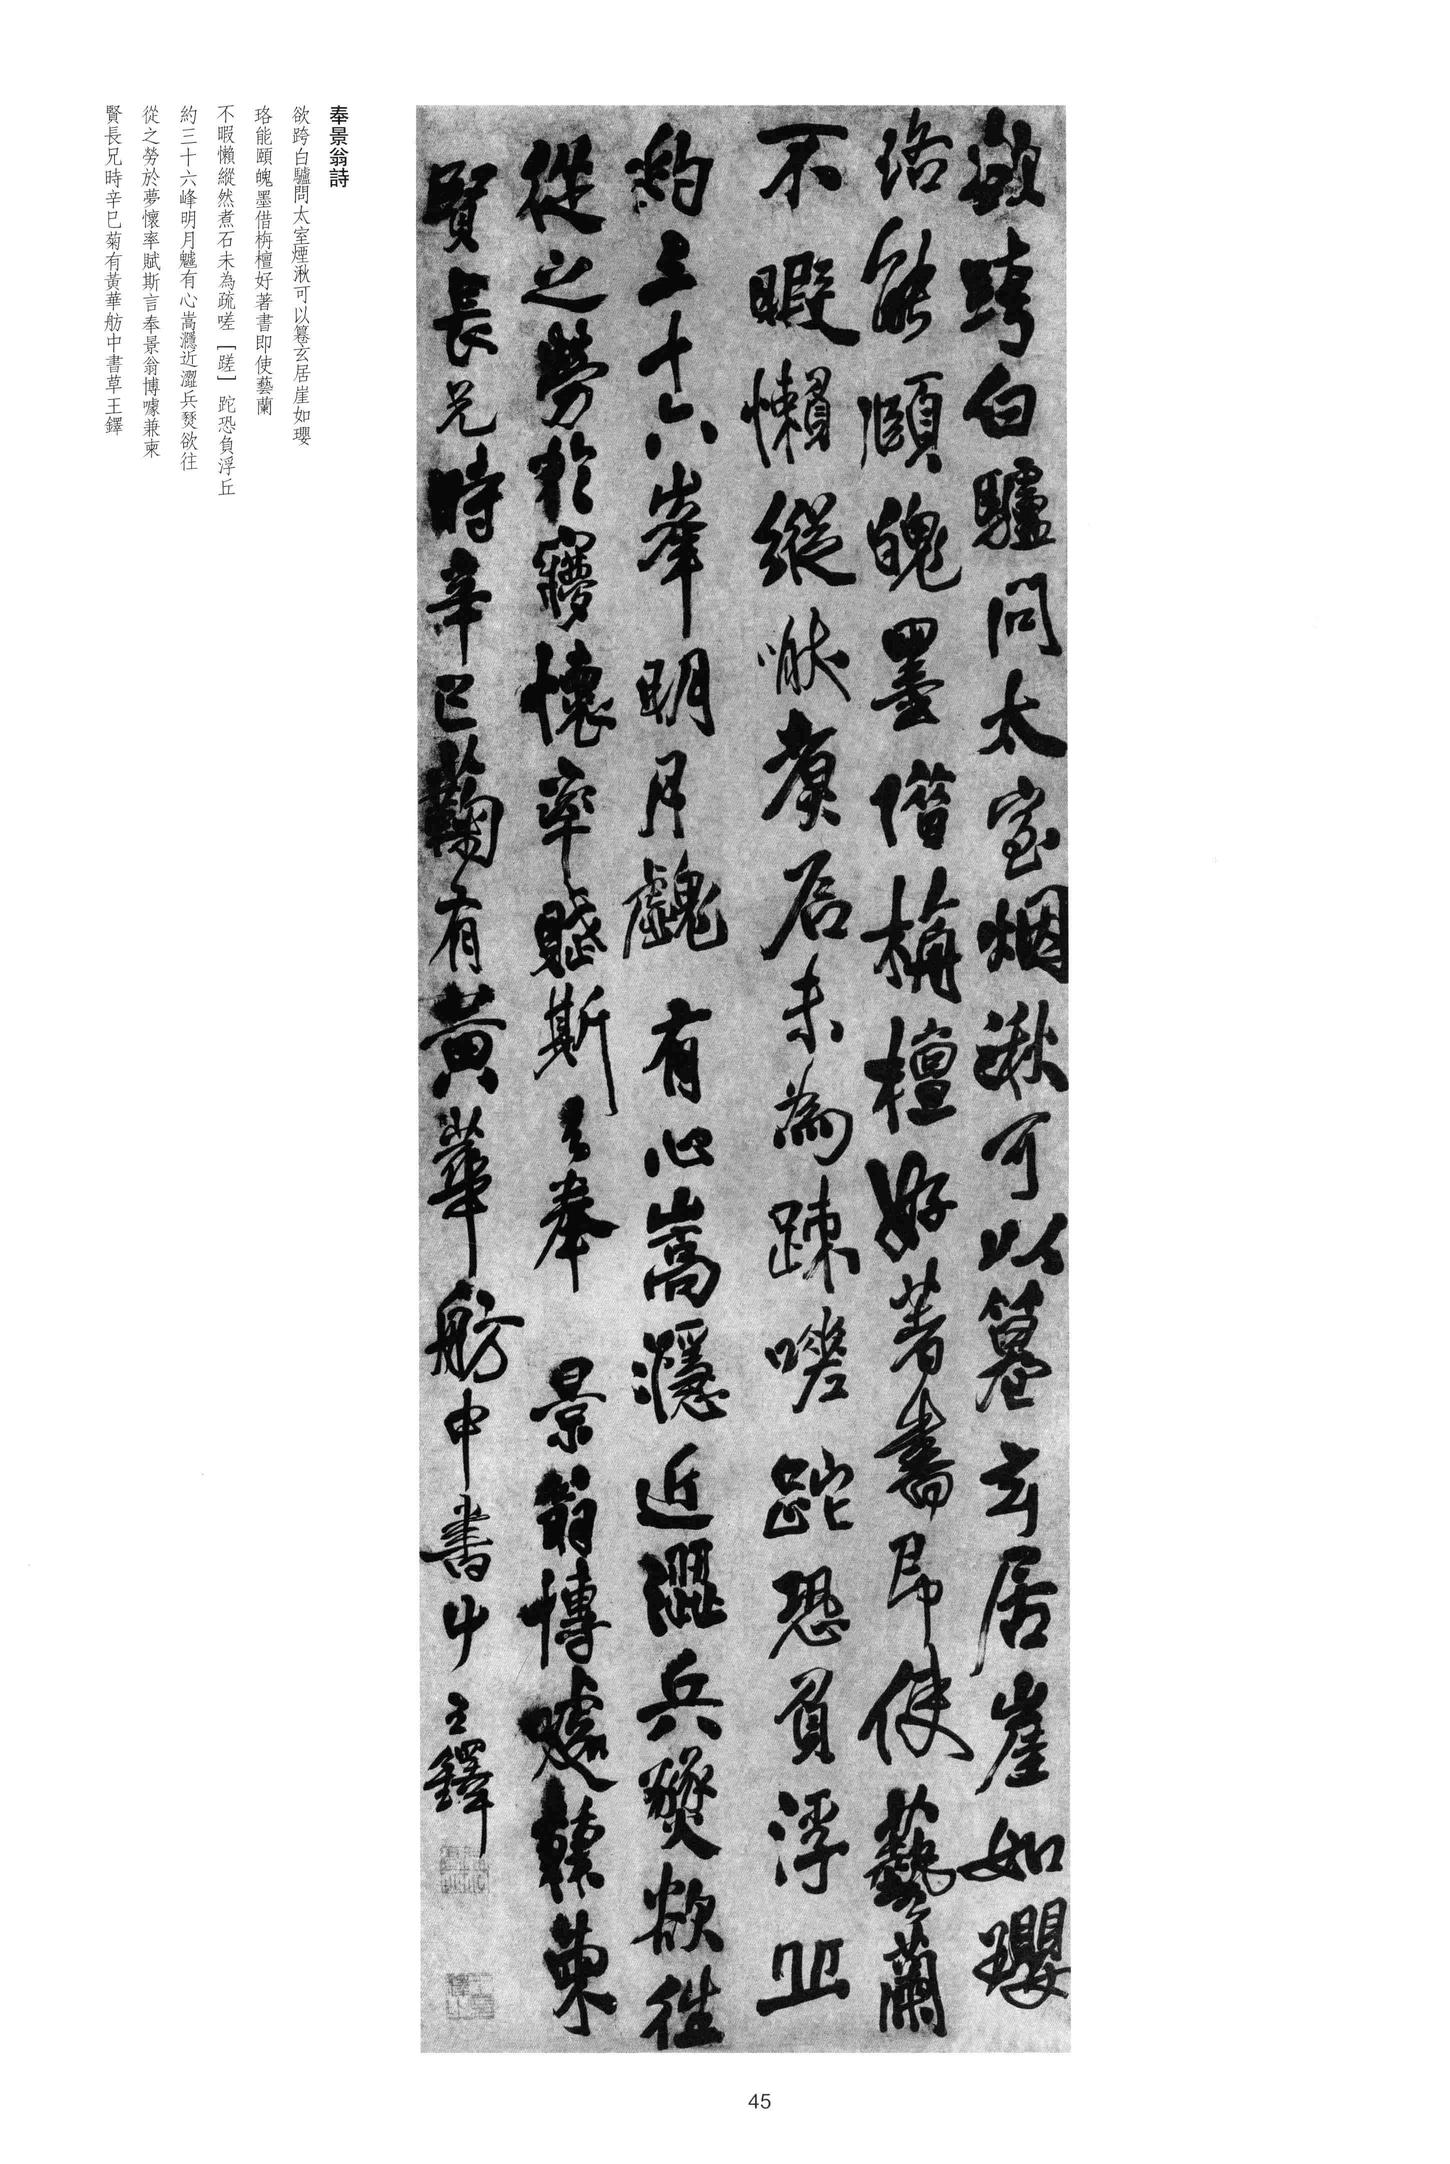 欲跨白驢問太室烟湫可以篹玄居崖如瓔
珞能頤魄墨借栴檀好著書即使藝蘭
不暇懶縱然煮石未為疎嗟跎恐負浮丘
約三十六峯明月魖有心嵩濦近澀兵燹欲往
從之勞於夢懷率賦斯言奉景翁博噱兼柬
賢長兄時辛巳菊有黃華舫中書草王鐸
奉景翁詩
欲跨白驢問太室煙湫可以篹玄居崖如瓔
珞能頤魄墨借栴檀好著書即使藝蘭
不暇懶縱然煮石未為疏嗟［蹉］跎恐負浮丘
約三十六峰明月魖有心嵩濦近澀兵燹欲往
從之勞於夢懷率賦斯言奉景翁博噱兼柬
賢長兄時辛巳菊有黃華舫中書草王鐸
45